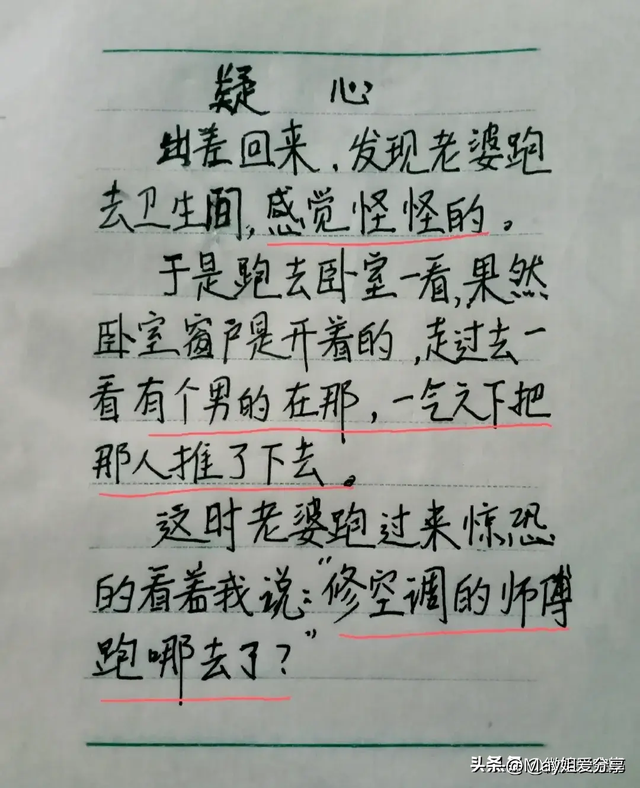 疑 心
出差回来，发现老婆跑
去卫生间，感觉怪怪的。
于是跑去卧室一看，果然
卧室窗户是开着的，走过去一
看有个男的在那，一气之下把
那人推了下去。
这时老婆跑过来惊恐
的看着我说：“修空调的师傅
跑哪去了？”
头条 @May姐爱分享